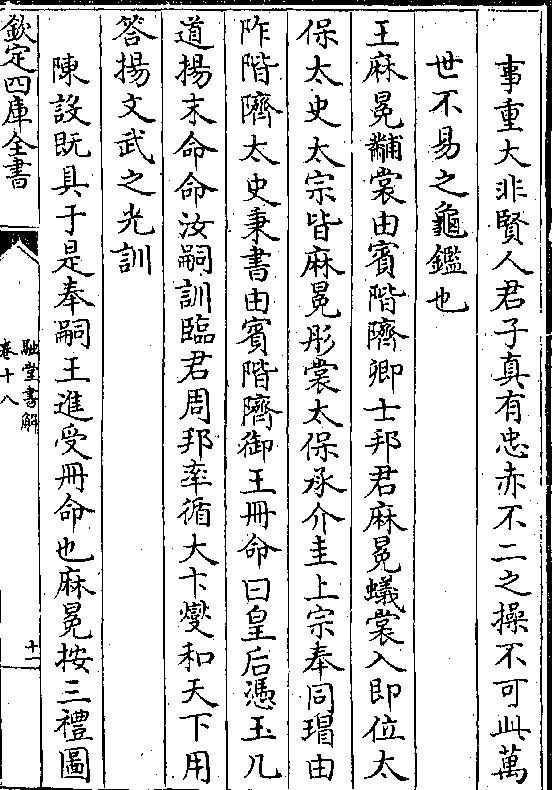 事重大非賢人君子真有忠赤不二之操不可此萬
世不易之龜鑑也
王麻冕黼裳由賓階隮卿士邦君麻冕蟻裳入即位太
保太史太宗皆麻冕彤裳太保承介圭上宗奉同瑁由
阼階隮太史秉書由賓階隮御王冊命曰皇后憑玉几
道揚末命命汝嗣訓臨君周邦率循大卞燮和天下用
答揚文武之光訓
陳設既具于是奉嗣王進受冊命也麻冕按三禮圖
欽定四庫全書
融堂書解
卷十八
十一